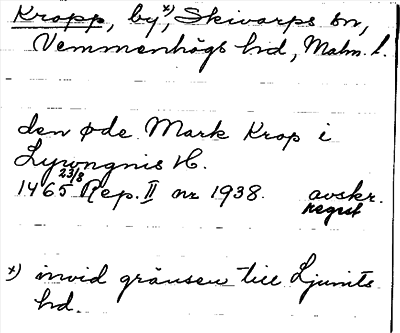 Kropp, by x), Skivarps sn,
Vemmenhögs hd, Malm. l.
den øde Mark Krop i
Lywngnis H.
1465 23/8 Rep. II nr 1938. avskr.
regest
x) invid gränsen till Ljunits
hd.